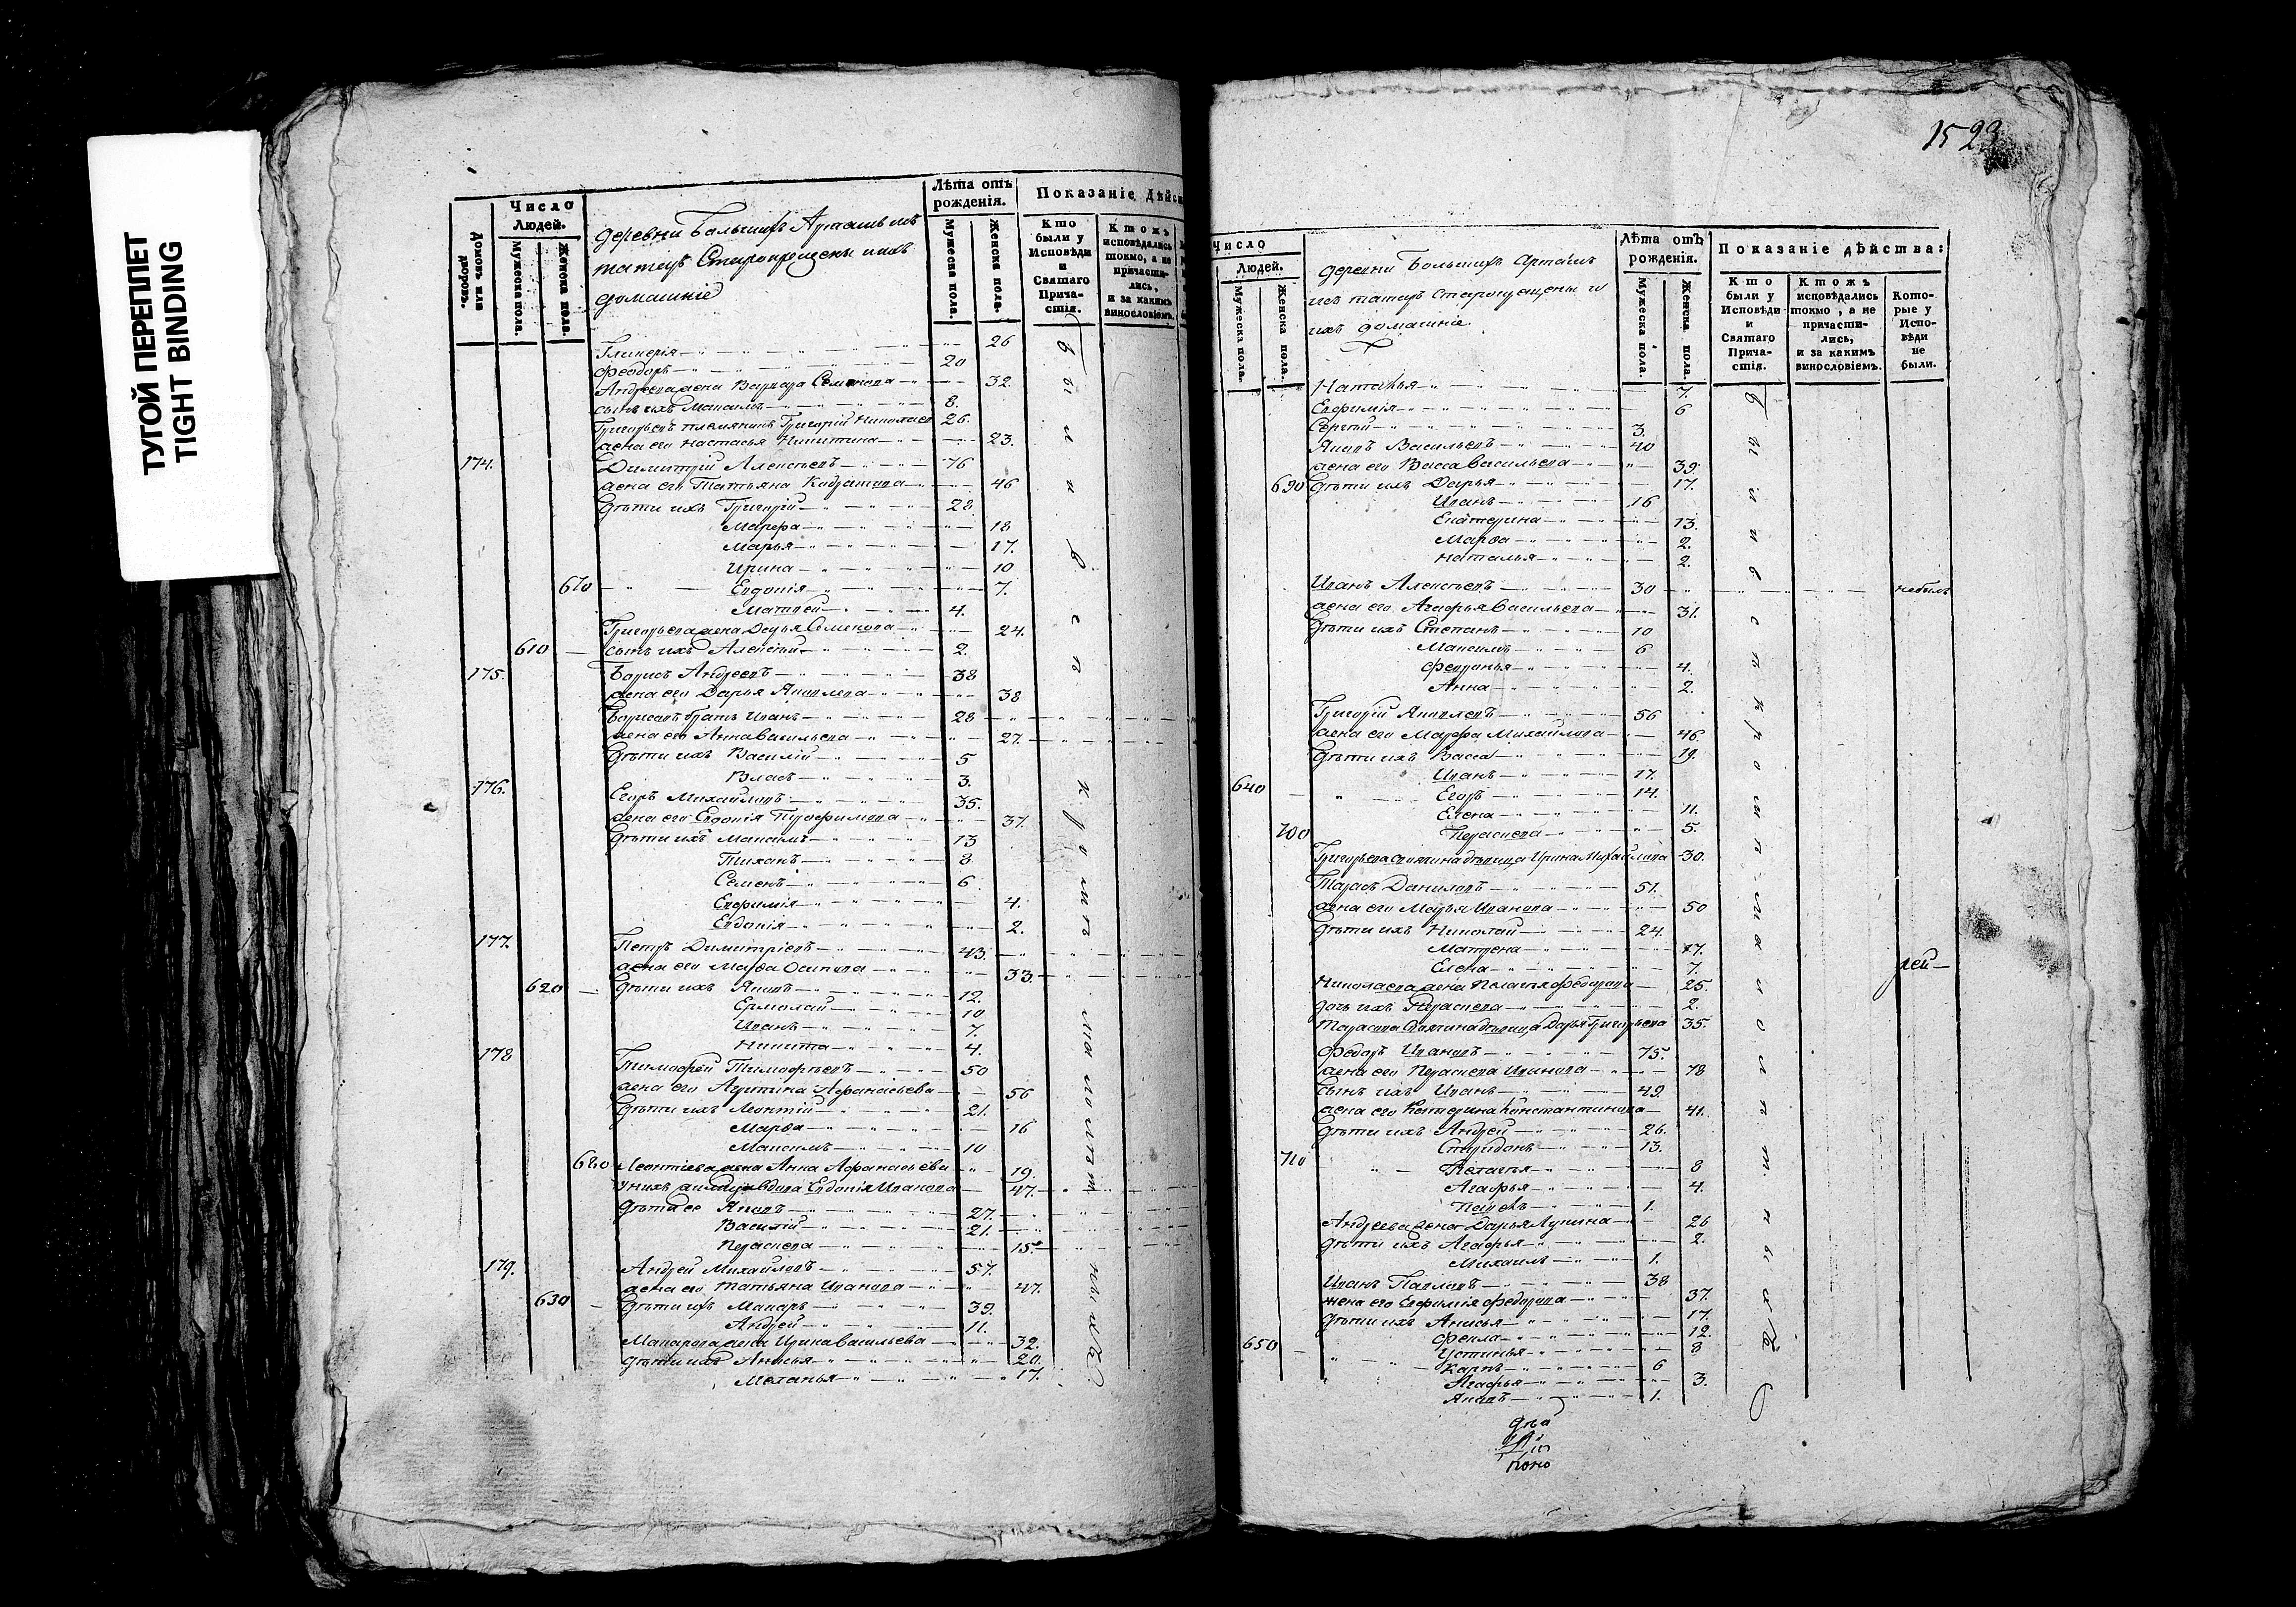 ТУГОЙ ПЕРЕПЛЕТ
TIGHT BINDING
Домовъ или дворовъ.
Число
Людей.
Мужеска пола.
Женска пола.
деревни Большихъ Арташъ изъ
татаръ Старокрещены ихъ
домашніе
Лѣта отъ
рожденія.
Мужеска пола.
Женска пола.
Показаніе Дѣйс
Кто
были у
Исповѣди
и
Святаго
Прича-
стія.
Ктожъ
исповѣдались
токмо, а не
причасти-
лись,
и за какимъ
винословіемъ.
Гликерія 26
Феодоръ 20
Андреева жена Варвара Семенова 32.
сынъ ихъ Максимъ 8.
Григорьевъ племянникъ Григорій Николаев 26.
жена его Настасья Никитина 23.
174. Димитрій Алексѣевъ 76
жена его Татьяна 46
дѣти ихъ Григорій 28
Марфа 18
Марья 17.
Ирина 10
670 Евдокія 7.
Матвей 4.
Григорьева жена Дарья Семенова 24.
610 сынъ ихъ Алексѣй 2.
175. Борисъ Андреевъ 38
жена его Дарья Яковлева 38
Борисовъ братъ Иванъ 28
жена его Анна Васильева 27.
дѣти ихъ Василій 5
Власъ 3.
176. Егоръ Михайловъ 35.
жена его Евдокія Трофимова 37.
дѣти ихъ Максимъ 13
Тиханъ 8
Семенъ 6
Евфимія 4.
Евдокія 2.
177. Петръ Димитріевъ 43.
жена его Марѳа Осипова 33.
620 дѣти ихъ Яковъ 12.
Ермолай 10
Иванъ 7.
Никита 4.
178 Тимофей Тимофѣевъ 50
жена его Афанасьева 56
дѣти ихъ Леонтій 21.
Марѳа 16
Максимъ 10
680 Леонтіева жена Анна Афанасьева 19.
у нихъ вдова Евдокія Иванова 47.
дѣти ее Яковъ 27.
Василій 21.
Параскева 15.
179. Андрей Михайловъ 57.
жена его Татьяна Иванова 47.
630 дѣти ихъ Макаръ 39.
Андрей 11.
Макарова жена Ирина Васильева 32.
дѣти ихъ Анисья 20.
Меланья 17.
были вси кромѣ малолѣтныхъ
1523
Число
Людей.
Мужеска пола.
Женска пола.
деревни Большихъ Арташъ
изъ татаръ Старокрещены и
ихъ домашніе
Лѣта отъ
рожденія.
Мужеска пола.
Женска пола.
Показаніе дѣйства:
Кто
были у
Исповѣди
и
Святаго
Прича-
стія.
Ктожъ
исповѣдались
токмо, а не
причасти-
лись,
и за какимъ
винословіемъ.
Кото-
рые у
Испо-
вѣди
не
были.
Наталья 7.
Евфимія 6
Сергѣй 3.
Яковъ Васильевъ 40
жена его Васса Васильева 39.
690 дѣти ихъ Дарья 17.
Иванъ 16
Екатерина 13.
Марѳа 2.
Наталья 2.
Иванъ Алексѣевъ 30 небылъ
жена его Агафья Васильева 31.
дѣти ихъ Степанъ 10
Максимъ 6
Февронья 4.
Анна 2.
Григорій Яковлевъ 56
жена его Марфа Михайлова 46.
дѣти ихъ Васса 19.
Иванъ 17.
640 Егоръ 14.
Елена 11.
700 Параскева 5.
Григорьева дѣвица Ирина Михайлова 30.
Тарасъ Даниловъ 51.
жена его Марья Иванова 50
дѣти ихъ Николай 24.
Матрена 17.
Елена 7.
Николаева жена Пелагея Федорова 25.
дочь ихъ Параскева 2.
Тарасова дѣвица Дарья Григорьева 35.
Федоръ Ивановъ 75.
жена его Параскева Иванова 78
сынъ ихъ Иванъ 49.
жена его Катерина Константинова 41.
дѣти ихъ Андрей 26.
Спиридонъ 13.
710 Пелагея 8
Агафья 4.
Павелъ 1.
Андреева жена Дарья Лукина 26
дѣти ихъ Агафья 2.
Михаилъ 1.
Иванъ Павловъ 38
жена его Евфимія Федорова 37.
дѣти ихъ Анисья 17.
Фекла 12.
650 Устинья 8
Карпъ 6
Агафья 3.
Яковъ 1.
были вси кромѣ малолѣтныхъ
рей